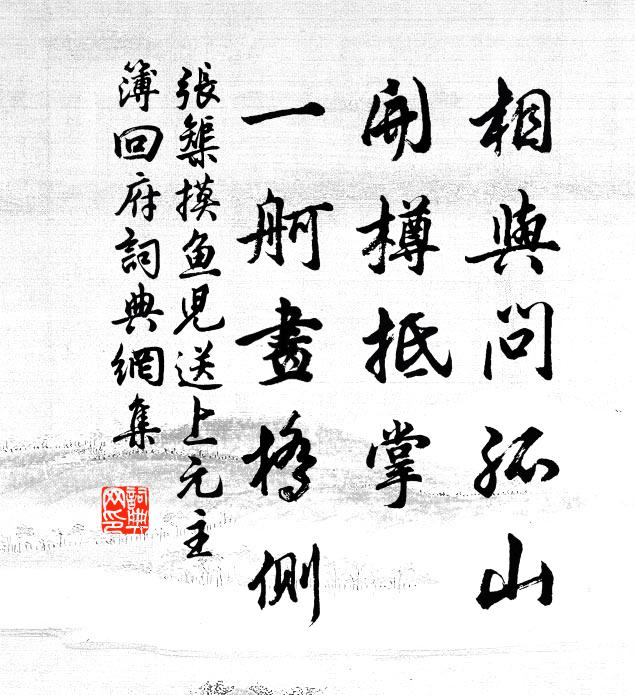 相與問孤山
開樽抵掌
一舸畫橋側
張榘摸鱼児送上元主
簿回府詞典網集
詞典網印